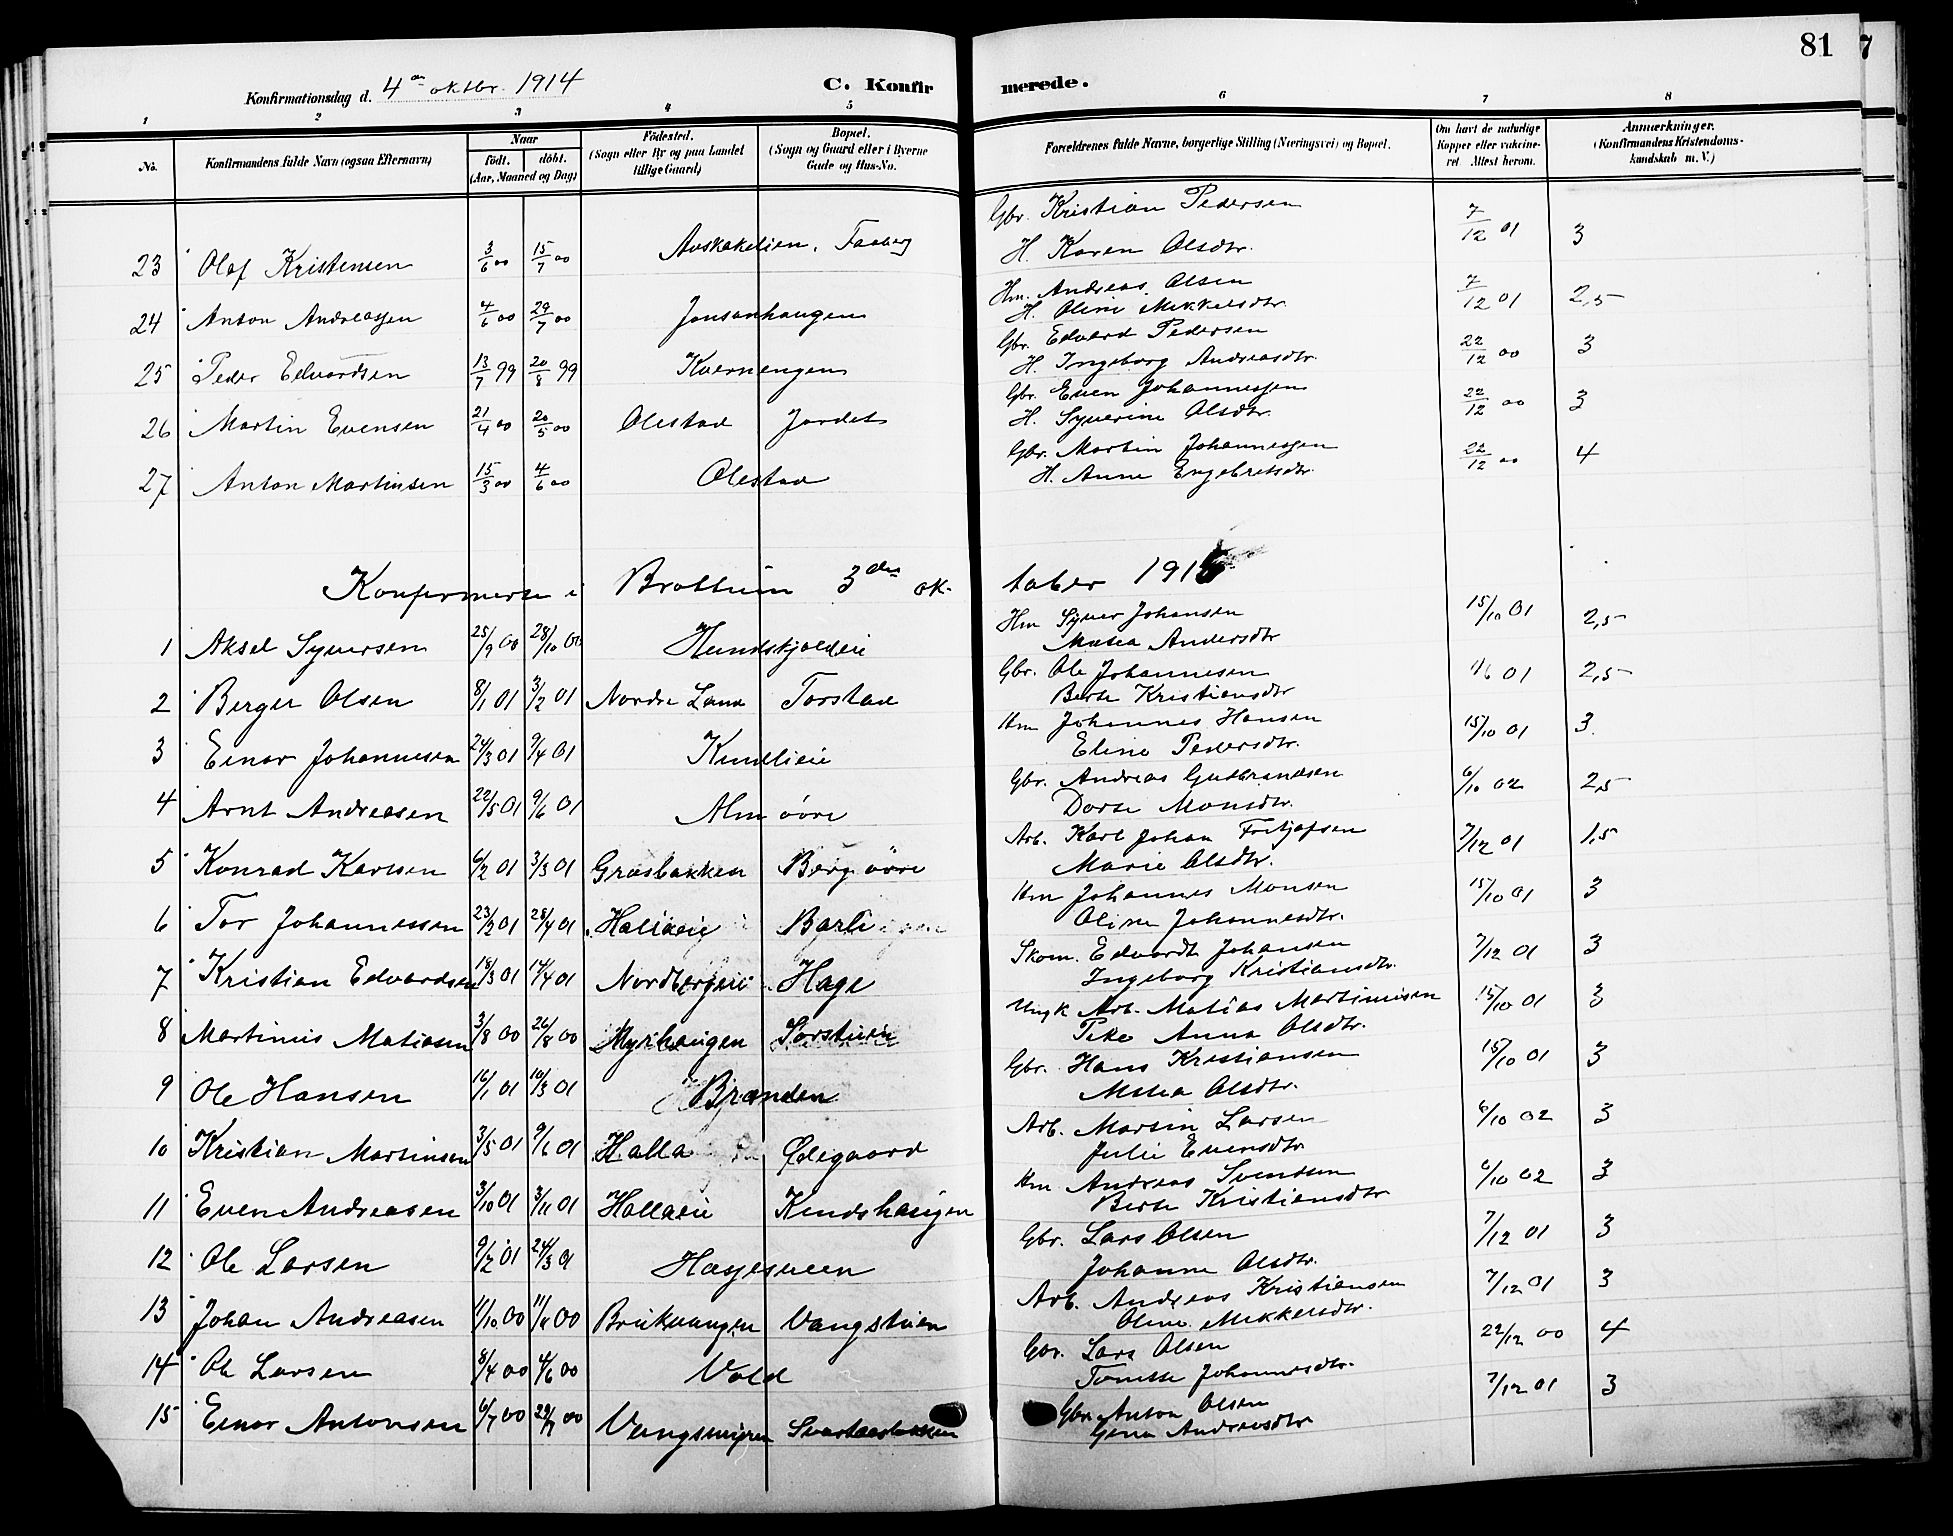 81
Konfirmationsdag d. 4de oktbr. 1914 C. Konfirmerede.
1 2 3 4 5 6 7 8
No. Konfirmandens fulde Navn (ogsaa Efternavn) Naar födt. döbt. (Aar, Maaned og Dag) Födested. (Sogn eller By og paa Landet tillige Gaard) Bopæl. (Sogn og Gaard eller i Byerne Gade og Hus-No. Forældrenes fulde Navne, borgerlige Stilling (Næringsvei) og Bopæl. Om havt de naturlige Kopper eller vaccineret Attest herom. Anmærkninger. (Konfirmandens Kristendomskundskab m. V.)
Gbr. Kristian Pedersen
23 Olaf Kristensen 3/6 00 15/7 00 Faaberg H. Karen Olsdtr. 7/12 01 3
Hm. Andreas Olsen
24 Anton Andreassen 4/6 00 29/7 00 Jonsanhaugen H. Oline Mikkelsdtr. 7/12 01 2,5
Gbr. Edvard Pedersen
25 Peder Edvardsen 13/7 99 20/8 99 Kvernengen H. Ingeborg Andreasdtr. 22/12 00 3
Gbr. Even Johannessen
26 Martin Evensen 21/4 00 20/5 00 Olestad Jordet H. Syverine Olsdtr. 22/12 00 3
Gbr. Martin Johannessen
27 Anton Martinsen 15/3 00 4/6 00 Olestad H. Anne Engebretsdtr. 22/12 00 4
Konfirmerte i Brøttum 3die oktober 1915
Hm Syver Johansen
1 Aksel Syversen 25/9 00 28/10 00 Hundskjoldeie Matea Andersdtr 15/10 01 2,5
Gbr. Ole Johannesen
2 Birger Olsen 8/1 01 3/2 01 Nordre Land Torstad Berte Kristiansdtr 01 2,5
Hm Johannes Hansen
3 Einar Johannesen 24/3 01 9/4 01 Kindlieie Eline Pedersdtr. 15/10 01 3.
Gbr. Andreas Gudbrandsen
4 Arnt Andreasen 22/5 01 9/6 01 Alm övre Dorte Monsdtr. 6/10 02 2,5
Arb. Karl Johan Fritjofsen
5 Konrad Karlsen 6/2 01 3/3 01 Græsbakken Berg övre Marie Olsdtr. 7/12 01 1,5
Hm Johannes Monsen
6 Tor Johannessen 23/2 01 28/4 01 Hallaeie Barli Oline Johannesdtr. 15/10 01 3
Skom. Edvardt Johansen
7 Kristian Edvardsen 18/3 01 14/4 01 Nordbergeie Hage Ingeborg Kristiansdtr. 7/12 01 3
Ungk Arb. Matias Martinusen
8 Martinus Matiasen 3/8 00 26/8 00 Myrhaugen Sorstuen Pike Anna Olsdtr. 15/10 01 3
Gbr. Hans Kristiansen
9 Ole Hansen 16/1 01 10/3 01 Branden Matea Olsdtr. 15/10 01 3
Arb. Martin Larsen
10 Kristian Martinsen 3/5 01 9/6 01 Halla Ødegaard Julie Evensdtr 6/10 02 3
Hm Andreas Svendsen
11 Even Andreasen 3/10 01 3/11 01 Hallaeie Kindshaugen Berte Kristiansdtr 6/10 02 3
Gbr. Lars Olsen
12 Ole Larsen 9/2 01 24/3 01 Hagesveen Johanne Olsdtr. 7/12 01 3
Arb. Andreas Kristiansen
13 Johan Andreasen 11/10 00 11/11 00 Vangstuen Oline Mikkelsdtr. 7/12 01 3
Gbr. Lars Olsen
14 Ole Larsen 8/4 00 4/6 00 Vold Tomtte Johannesdtr. 22/12 00 4
Gbr. Anton Olsen
15 Einar Antonsen 6/7 00 29/7 00 Gina Andreasdtr 7/12 01 3